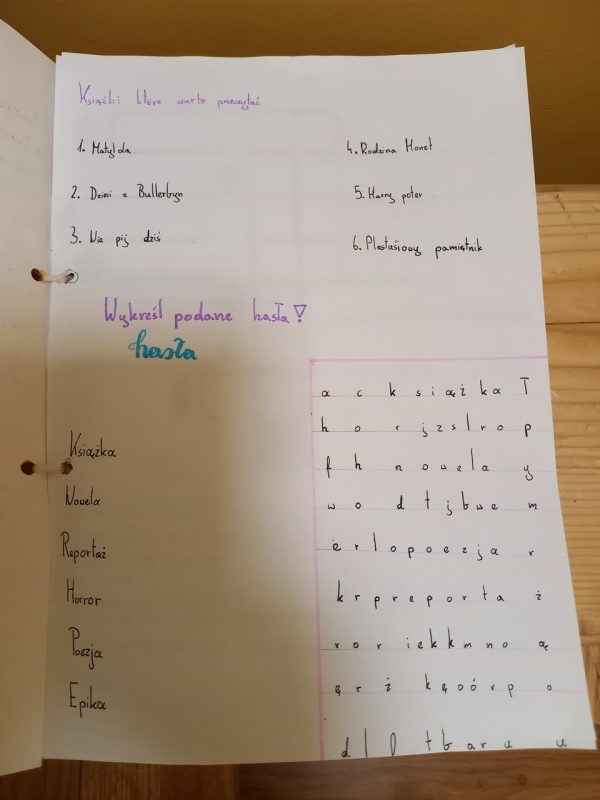 Książki które warto przeczytać
1. Matylda
2. Dzieci z Bullerbyn
3. Nie pij dziś
4. Rodzina Monet
5. Harry poter
6. Plastusiowy pamiętnik
Wykreśl podane hasła!
hasła
Książka
Nowela
Reportaż
Horror
Poezja
Epika
a c k s i ą ż k a T
h o r j z s l r o p
f h n o w e l a y
w o d t j b w e m
e r l o p o e z j a r
k r p r e p o r t a ż
r o r i e k k m n o ą
ę r ż k ę o ó r p o
d l l t b a r u u